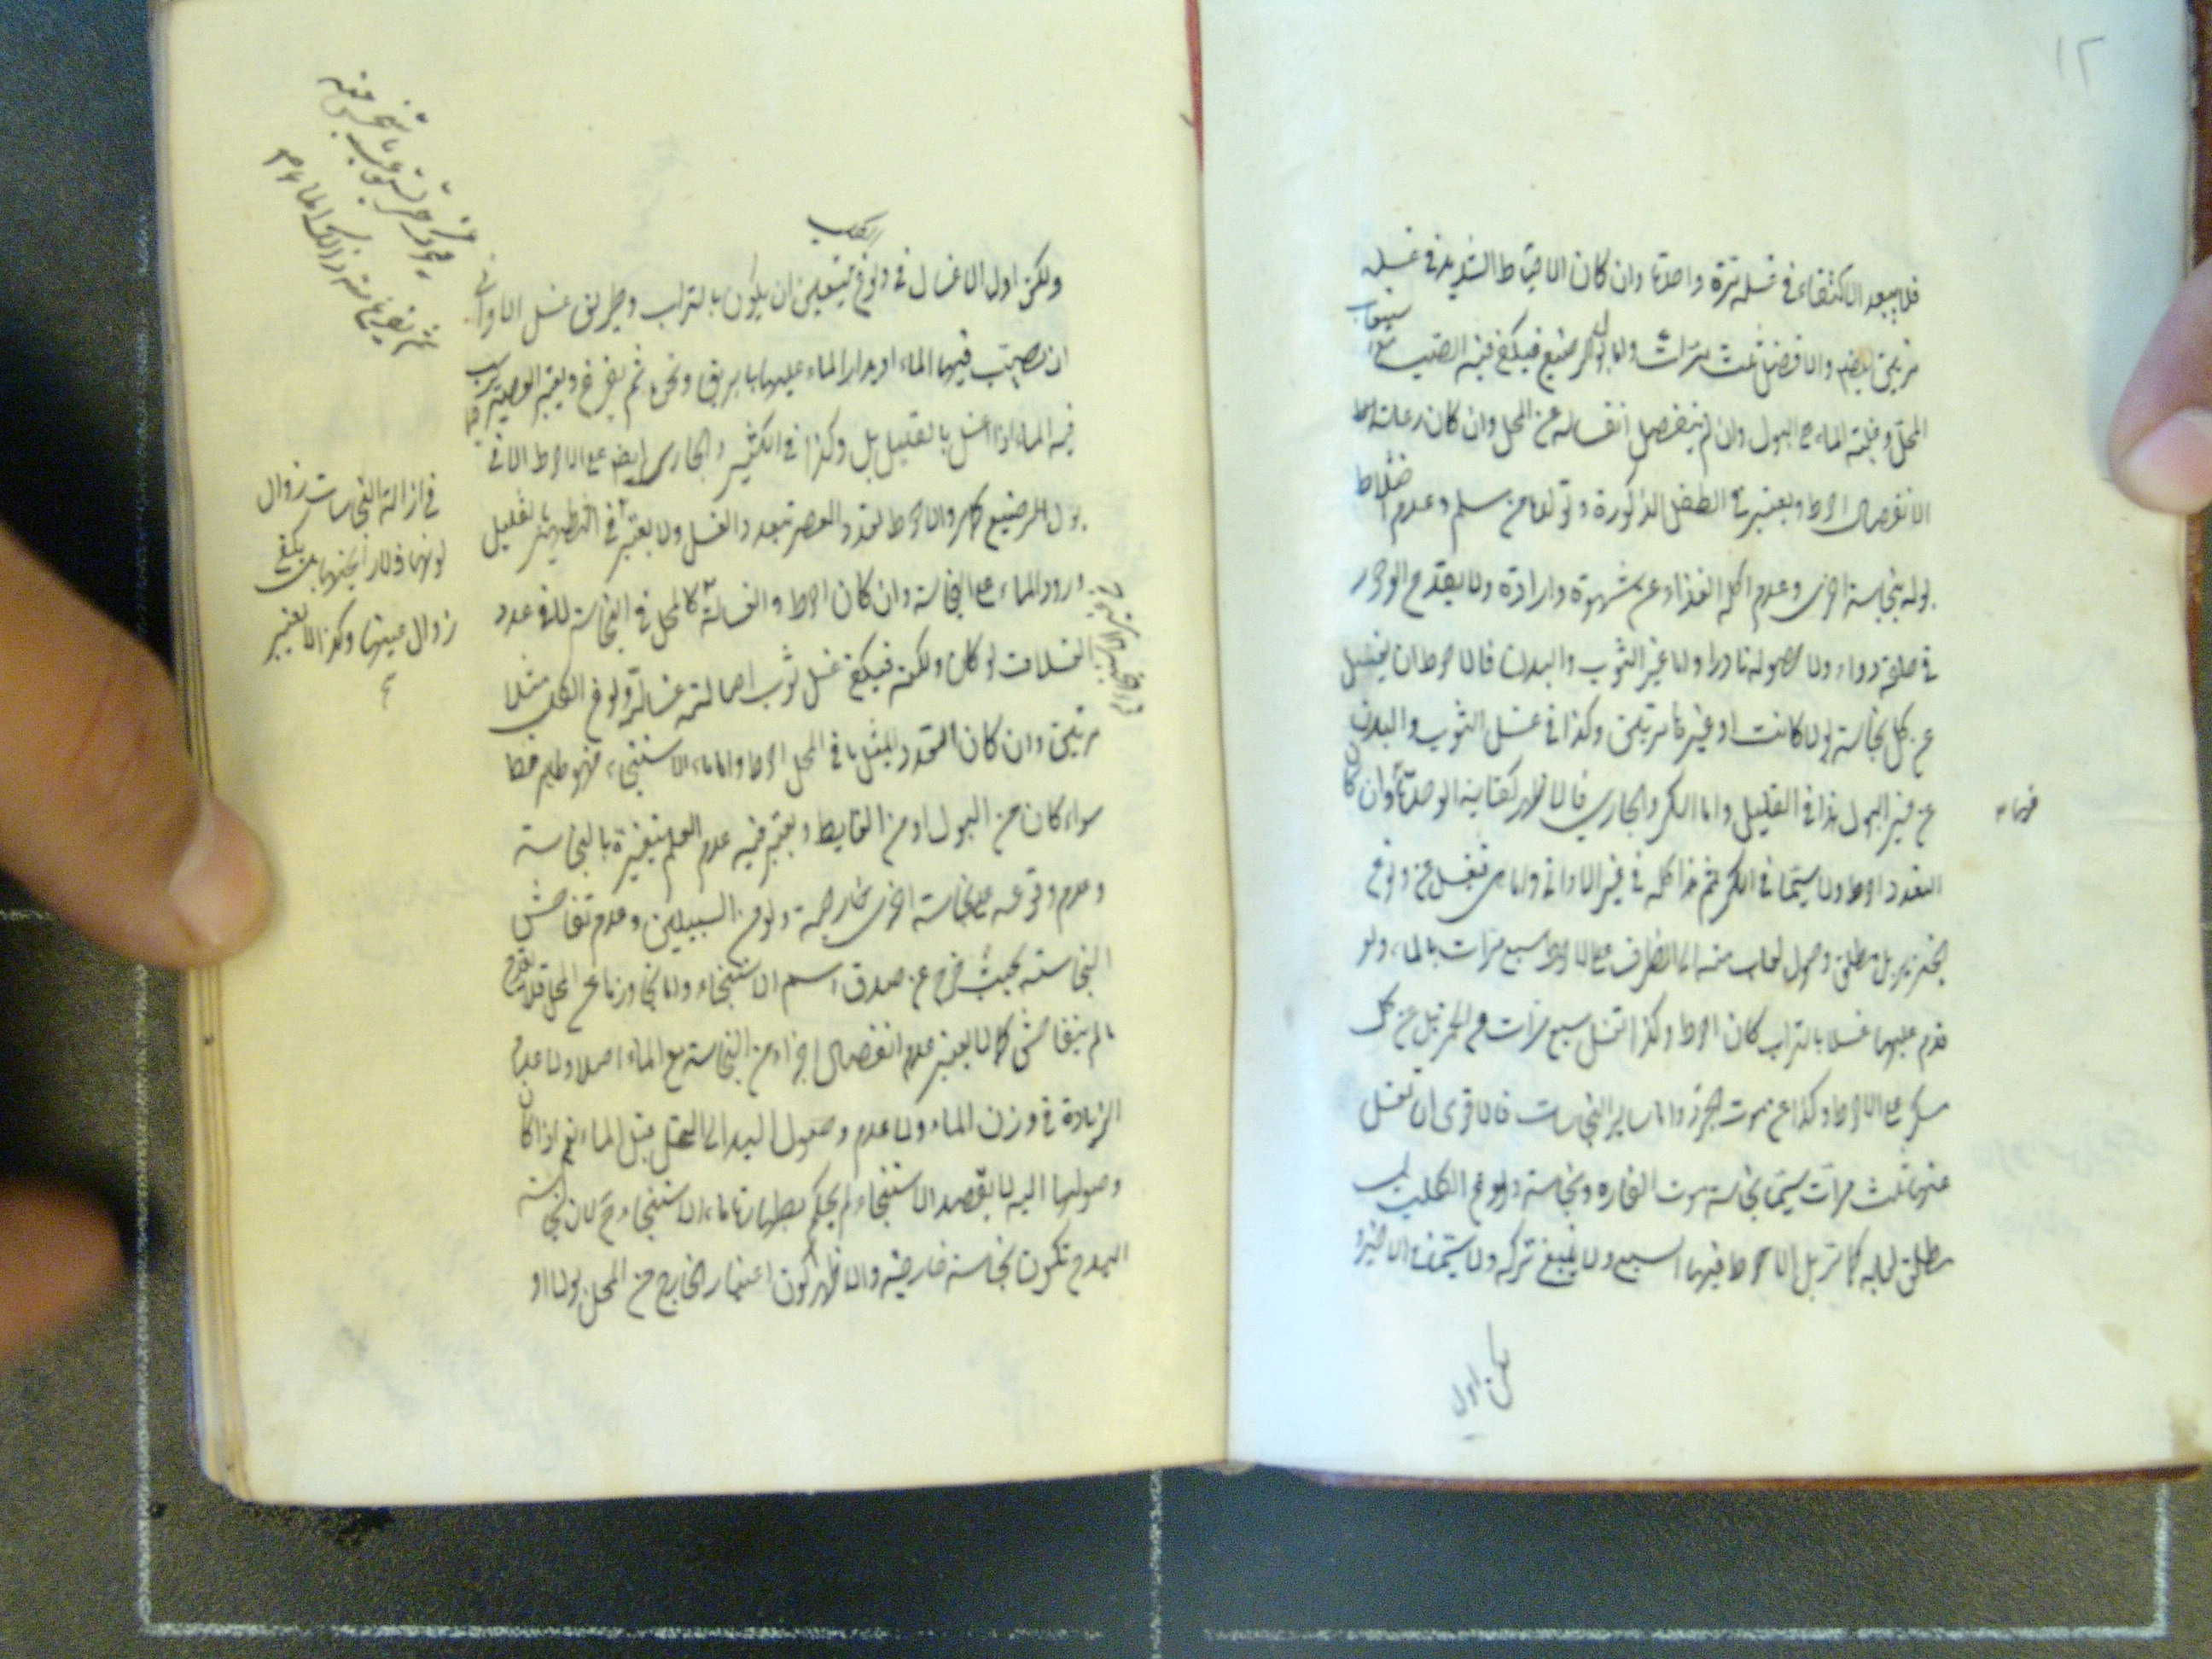 ١٢
فلا يبعد الاكتفاء في غسله مرة واحدة وان كان الاحتياط الشديد في غسله
مرتين ايضا والافضل ثلث مرات واما بول الرضيع فيكفي فيه الصب مع استيعاب
المحل وغلبة الماء على البول وان لم ينفصل الغسالة عن المحل وان كان رعاية
الانفصال احوط ويعتبر في الطفل الذكورة وتولده من مسلم وعدم اختلاط
بوله بنجاسة اخرى وعدم اكله الغذاء عن شهوة وارادة ولا يقدح الوجور
في حلقه دواء ولا حصوله نادرا واما غير الثوب والبدن فالاحوط ان يغسل
عن كل نجاسة بولا كانت او غيرها مرتين وكذا في غسل الثوب والبدن
عن غير البول هذا في القليل واما الكر والجاري فالاظهر كفاية الوحدة وان كان
فيهما
التعدد احوط ولا سيما في الكر ثم هذا كله في غير الاواني واما هي فتغسل من ولوغ
الخنزير بل مطلق وصول لعاب منه الى الظرف على الاحوط سبع مرات بالماء ولو
قدم عليها غسلا بالتراب كان احوط وكذا تغسل سبع مرات في الخمر بل عن كل
مسكر على الاحوط وكذا عن موت الجرذ واما ساير النجاسات فالاقوى ان تغسل
عنها ثلث مرات سيما نجاسة موت الفارة ونجاسة ولوغ الكلب بل
مطلق لعابه كما مر بل الاحوط فيها السبع ولا ينبغي تركه ولا سيما في الاخير
بل اول
ولكن اول الاغسال في ولوغ الكلب يتعين ان يكون بالتراب وطريق غسل الاواني
ان يصب فيها الماء او يدار الماء عليها بابريق ونحوه ثم يفرغ ويعتبر العصر
فيه الماء اذا غسل بالقليل بل وكذا في الكثير والجاري ايضا على الاحوط الا في
بول الرضيع كما مر والاحوط تعدد العصر بتعدد الغسل ولا يعتبر في التطهير بالقليل
ورود الماء على النجاسة وان كان احوط والغسالة كالمحل في النجاسة لا في عدد
الغسلات لو كان ولكنه فيكفي غسل ثوب اصابته غسالة ولوغ الكلب مثلا
مرتين وان كان التعدد بمثل ما في المحل احوط واما ماء الاستنجاء فهو طاهر مطلقا
سواء كان من البول او من الغايط ويعتبر فيه عدم العلم بتغيره بالنجاسة
وعدم وقوعه على نجاسة اخرى خارجة ولو من السبيلين وعدم تفاحش
النجاسة بحيث خرج عن صدق اسم الاستنجاء واما تجاوزها عن المحل فلا يقدح
ما لم يتفاحش كما لا يعتبر عدم انفصال اجزاء من النجاسة مع الماء اصلا ولا عدم
الزيادة في وزن الماء ولا عدم وصول اليد الى المحل قبل الماء نعم اذا كان
وصولها اليه لا بقصد الاستنجاء لم يحكم بطهارة ماء الاستنجاء ح لان نجاسة
اليد ح تكون نجاسة خارجية والاظهر كون اعتبار الخارج من المحل بولا او
في ازالة النجاسات زوال
لونها ولا رايحتها بل يكفي
زوال عينها وكذا لا يعتبر